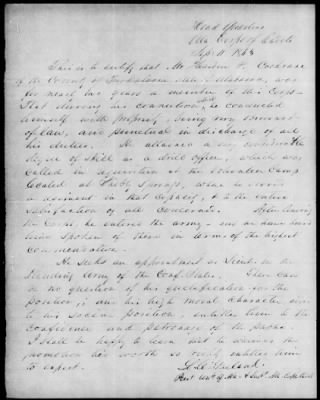 Head Quarters
Ala Corps of Cadets
Sep 11 1863
This is to certify that Mr F. Cochrane
of the County of Tuskaloosa State, Alabama, was
for nearly two years a member of this Corps—
That during his connection, he conducted
himself with propriety, being
of law, and punctual in discharge of all
his duties. He attained a very considerable
degree of skill as a drill officer, which was
called in requisition at the Instruction Camp
located at Springs, where he
a regiment in that capacity, & to the entire
satisfaction of all Concerned. After leaving
the Corps, he entered the army—
been spoken of there in terms of the highest
Commendation—
He seeks an appointment as Lieut. in the
Standing Army of the Conf. States. There can
be no question of his qualification for the
position, and his high moral character and
his social position, entitle him to the
confidence and patronage of the
I shall be happy to learn that he receives the
promotion his worth so entitles him
to expect.